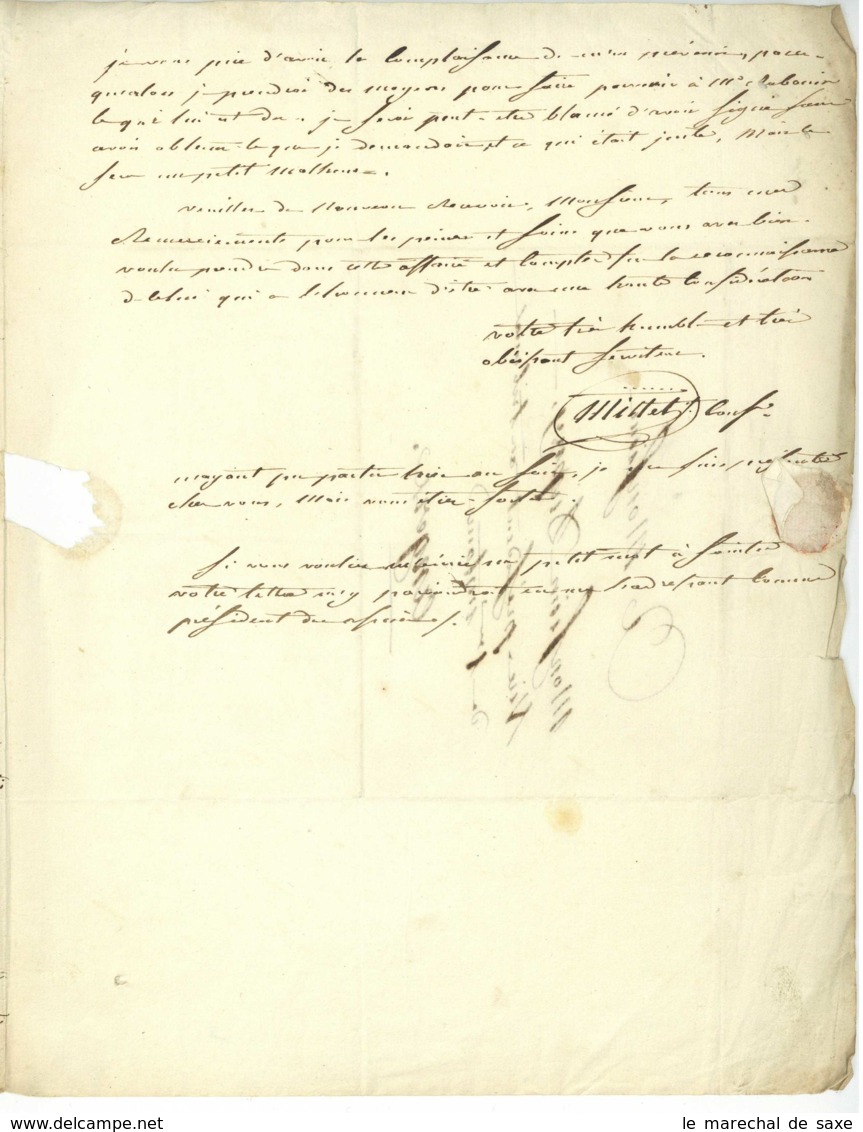 je vous prie d'avoir la complaisance de m'en prévenir, parce
qu'alors je prendrai des moyens pour faire parvenir à Mr
ce qui lui est du. je serai peut-etre blamé d'avoir signé sans
avoir obtenu ce que je demandois et ce qui était juste, Mais ce
sera un petit malheur.
veuillez de Nouveau Recevoir, Monsieur, tous mes
Remerciements pour les peines et soins que vous avez bien
voulu prendre dans cette affaire et compter sur la reconnaissance
de celui qui a l'honneur d'être avec une haute considération
votre très humble et très
obéissant serviteur.
Millet
n'ayant pu partir hier au soir, je
chez vous, Mais vous étiez sorti.
Si vous vouliez m'écrire un petit mot à
votre lettre m'y parviendrait en me l'adressant comme
président des assises.
le marechal de saxe